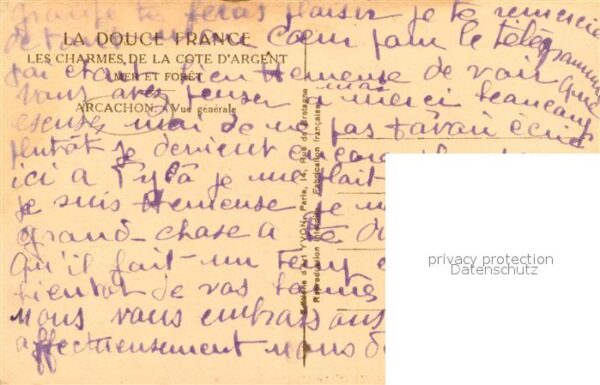 grande tu feras plaisir je te remercie
de tout mon Coeur pour le télégramme
LA DOUCE FRANCE
LES CHARMES DE LA COTE D'ARGENT
MER ET FORÊT
ARCACHON Vue générale
j'ai été bien Hemeuse de voir que
vous avez penser a moi merci beaucoup
escuse moi de ne pas t'avoir écrit
plutôt je devient
ici a Pyla je me plait
je suis Hemeuse je
grand-chose a te
qu'il fait un Temp
bientot de vos bonnes
nous vous embrassons
affectueusement nous
Editions d'Art YVON, Paris, 14, Rue de Bretagne
Reproduction interdite. Fabrication française
privacy protection
Datenschutz